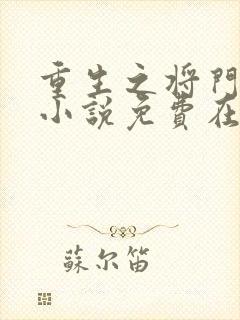 重生之将门
小说免費在
蘇尔笛